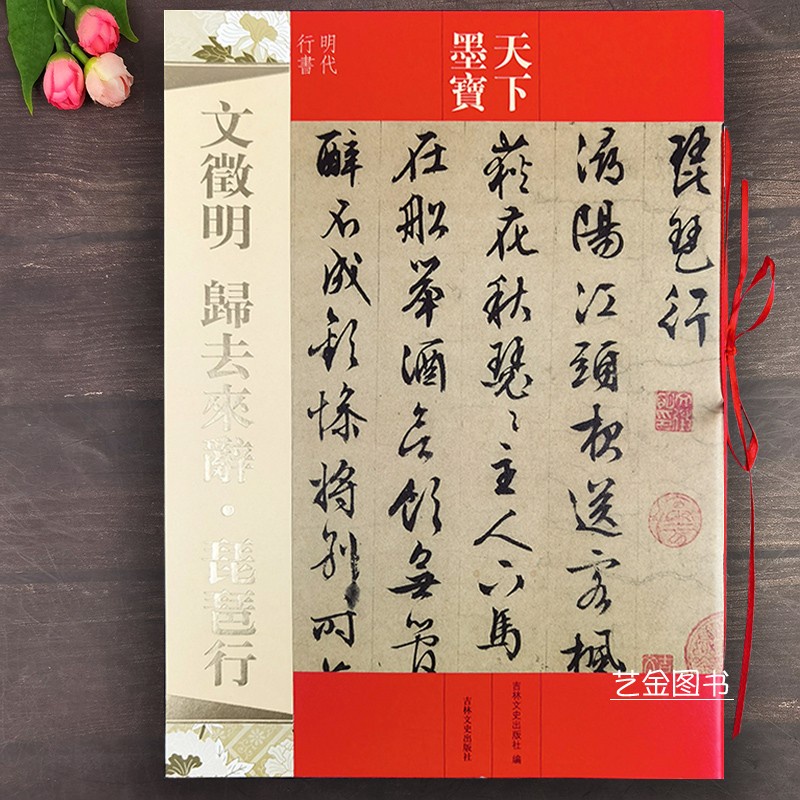 天下
墨寶
明代
行書
文徵明 歸去來辭·琵琶行
琵琶行
潯陽江頭夜送客楓
荻花秋瑟〻主人下馬
在船舉酒欲飲無管
醉不成歡慘將別時
吉林文史出版社 编
吉林文史出版社
艺金图书